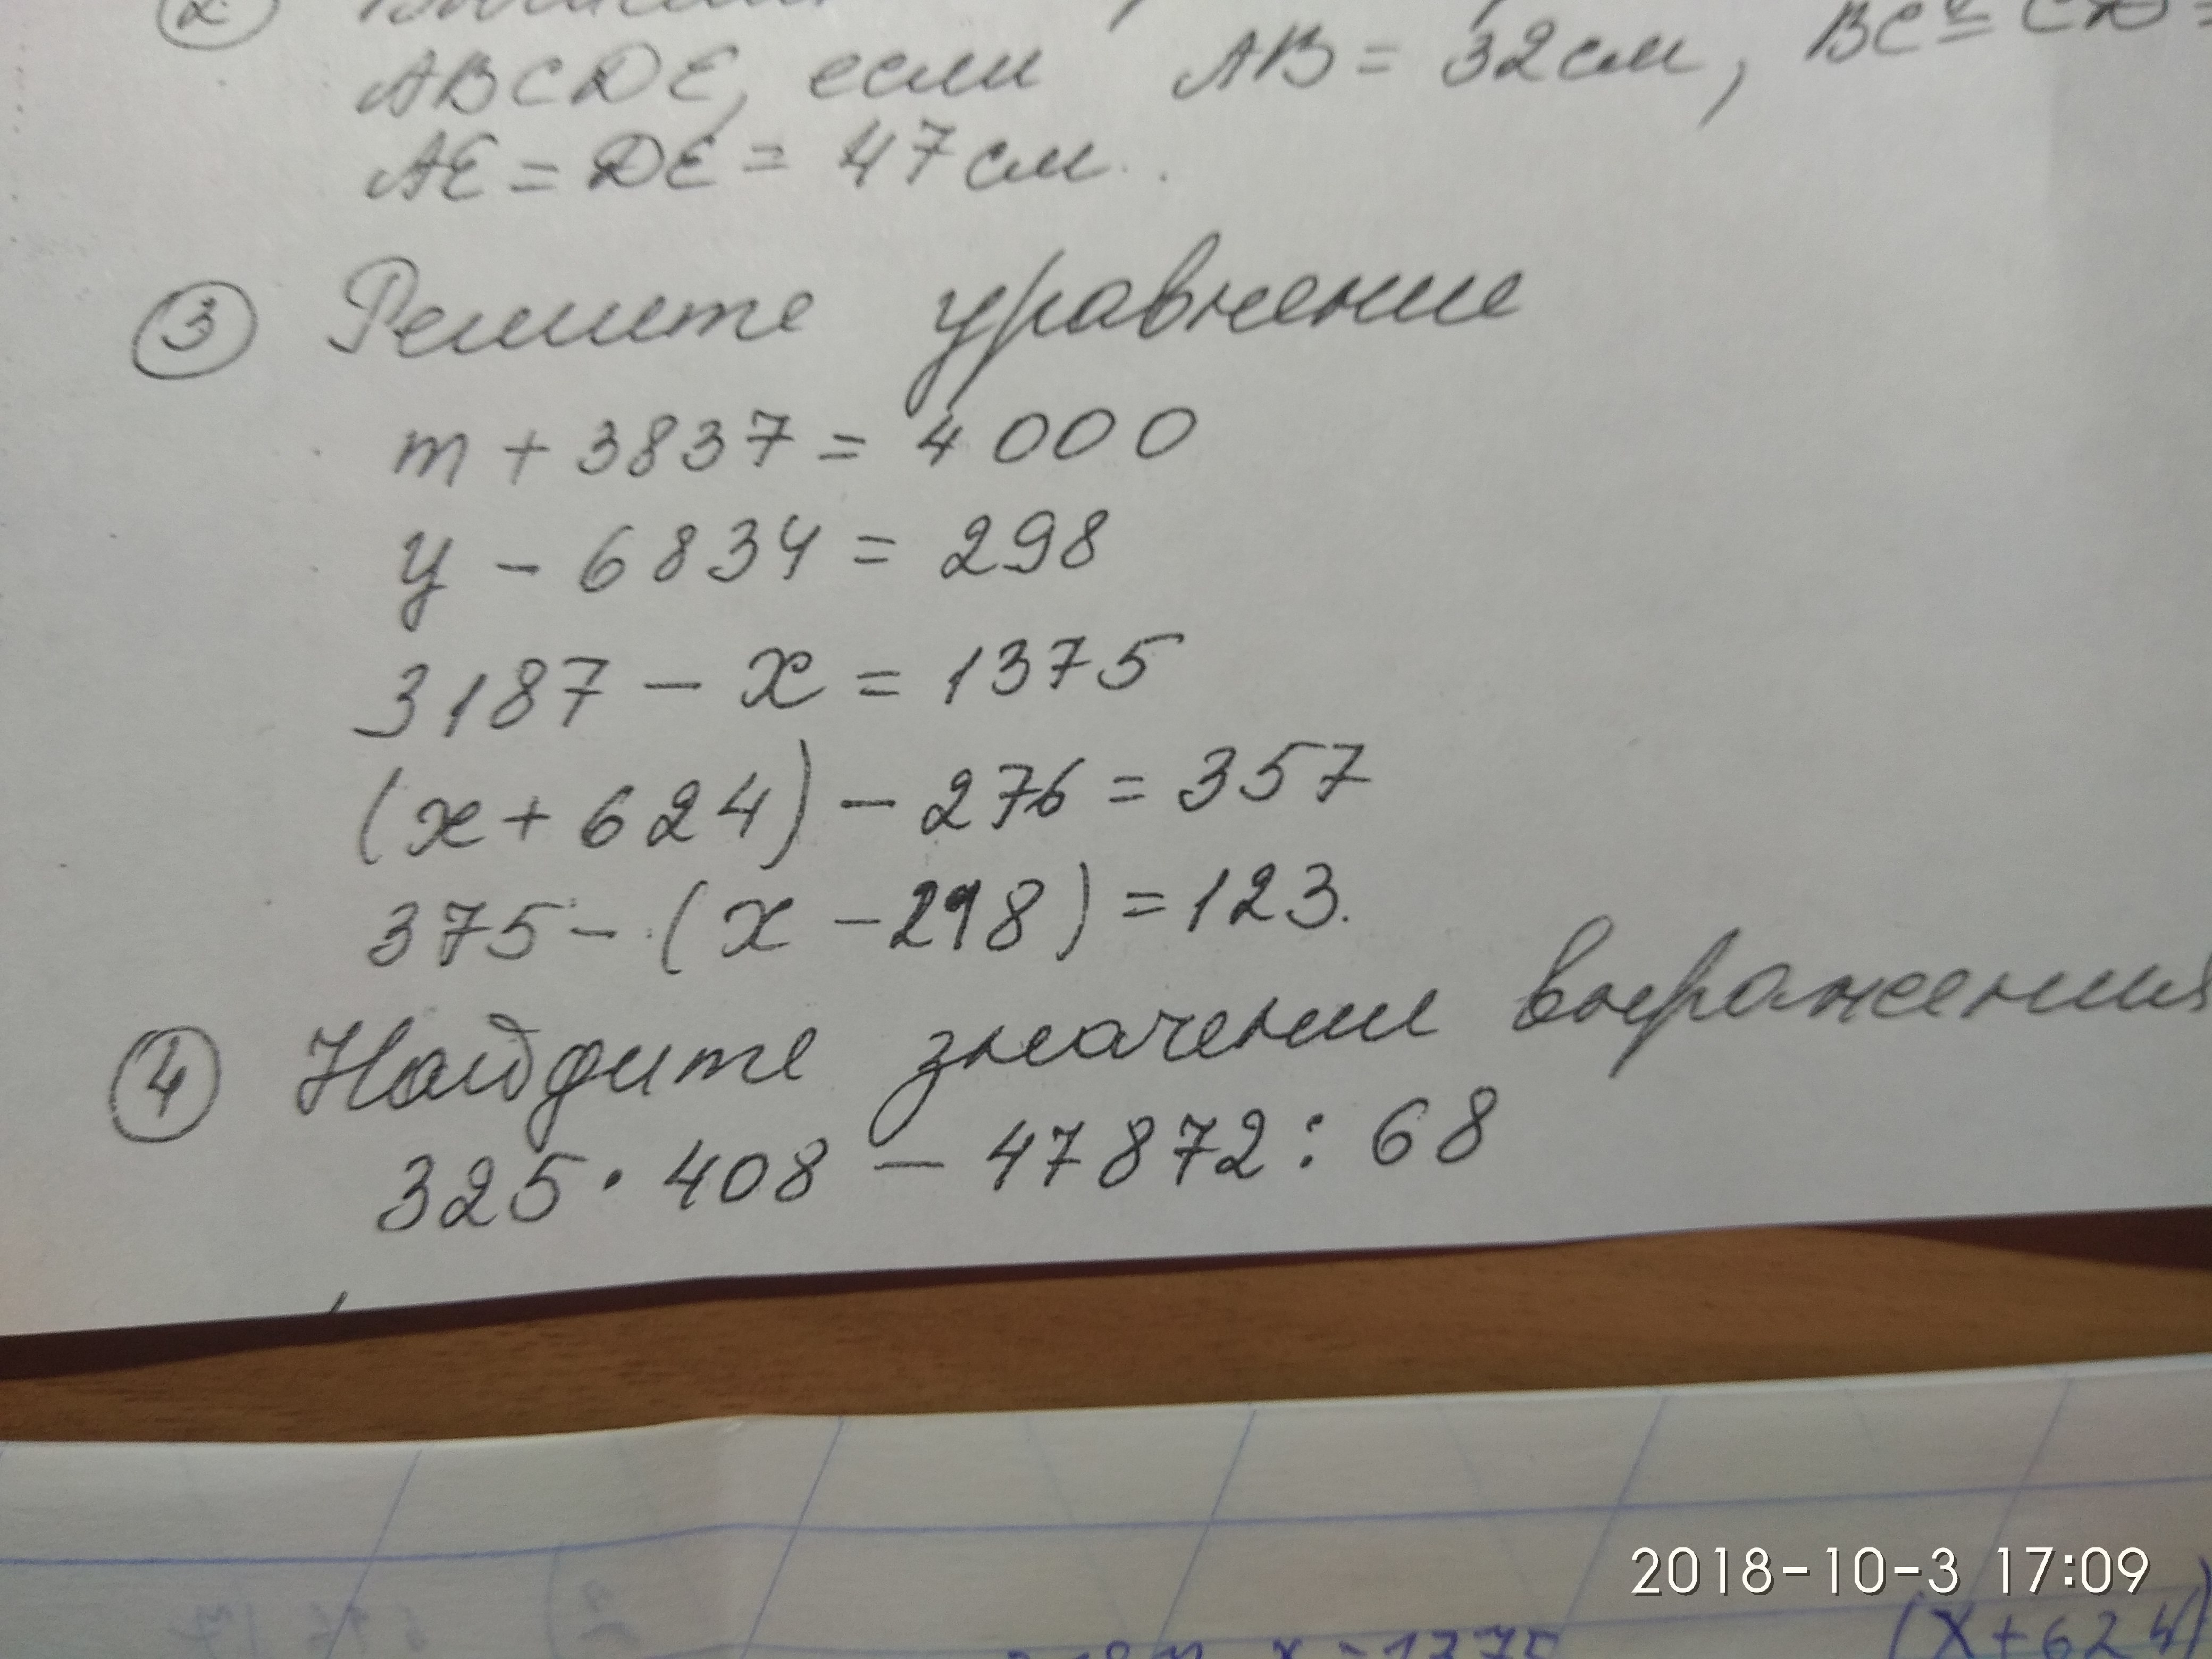 2
ABCDE, если AB = 32 см, BC = CD =
AE = DE = 47 см.
3 Решите уравнение
m + 3837 = 4000
y - 6834 = 298
3187 - x = 1375
(x + 624) - 276 = 357
375 - (x - 298) = 123.
4 Найдите значении выражения
325 · 408 - 47872 : 68
2018-10-3 17:09
x = 1375 (x+624)